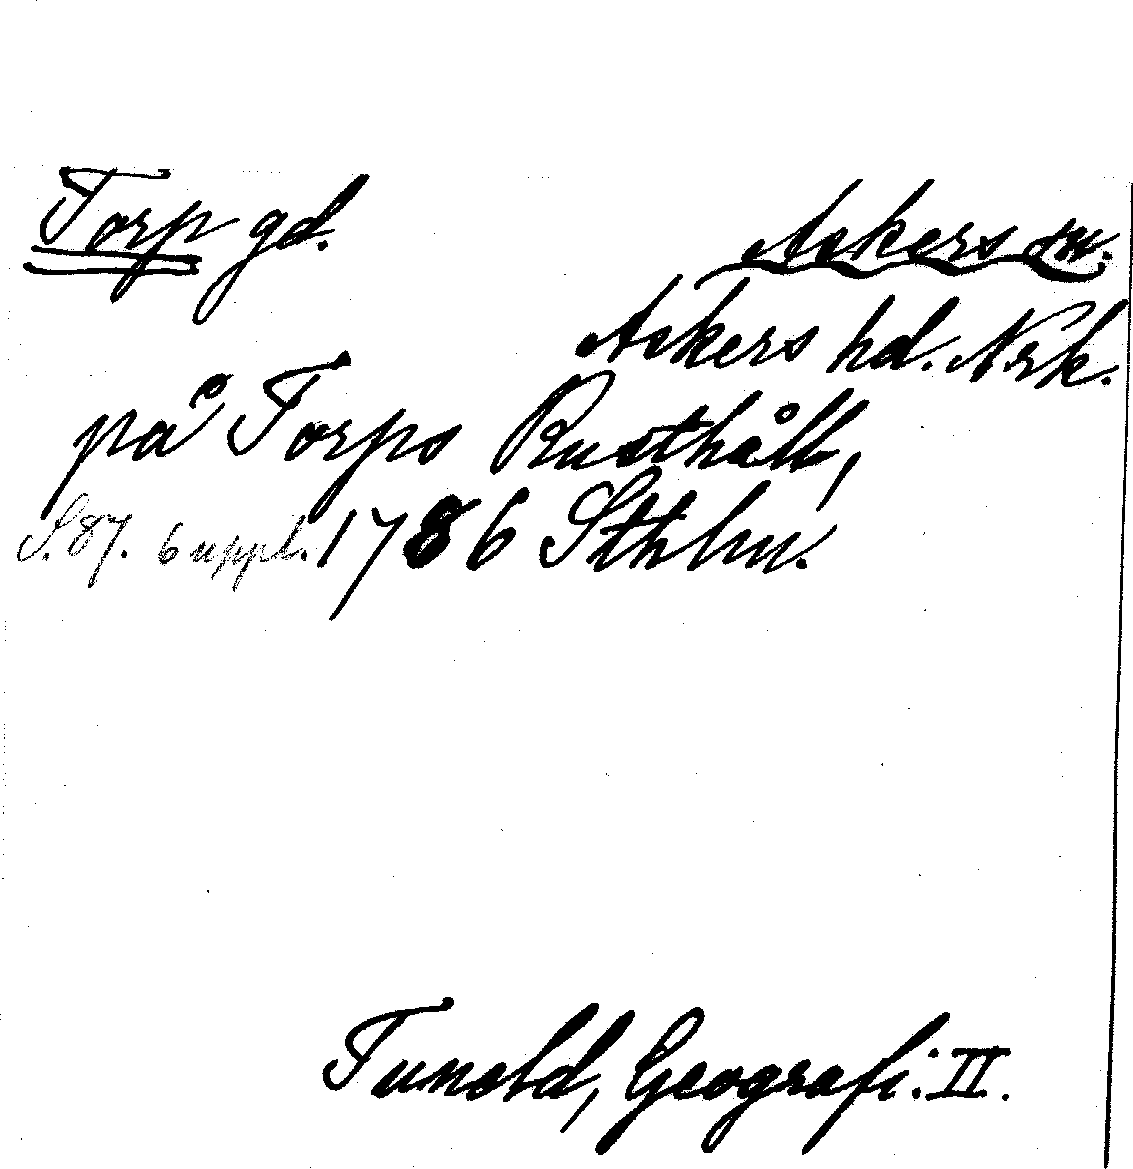 Torp gd. Askers sn.
Askers hd. Nrk.
på Torps Rusthåll,
S. 87. 6 uppl. 1786 Sthlm.
Tuneld, Geografi. II.